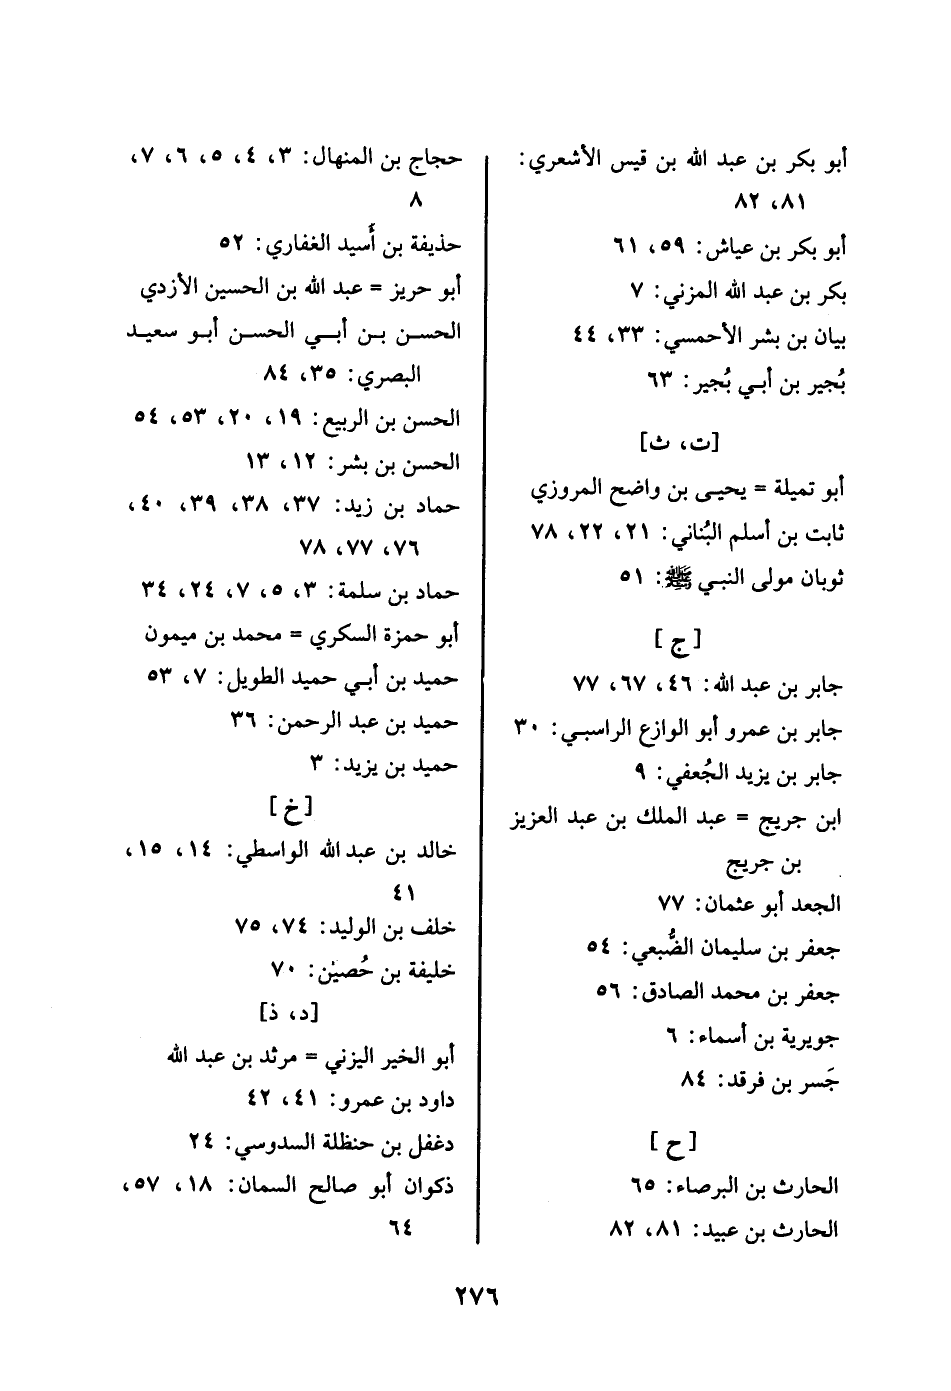 أبو بكر بن عبد الله بن قيس الأشعري:
٨١، ٨٢
أبو بكر بن عياش: ٥٩، ٦١
بكر بن عبد الله المزني: ٧
بيان بن بشر الأحمسي: ٣٣، ٤٤
بُجير بن أبي بُجير: ٦٣
[ت، ث]
أبو تميلة = يحيى بن واضح المروزي
ثابت بن أسلم البُناني: ٢١، ٢٢، ٧٨
ثوبان مولى النبي ﷺ: ٥١
[ج]
جابر بن عبد الله: ٤٦، ٦٧، ٧٧
جابر بن عمرو أبو الوازع الراسبي: ٣٠
جابر بن يزيد الجُعفي: ٩
ابن جريج = عبد الملك بن عبد العزيز
بن جريج
الجعد أبو عثمان: ٧٧
جعفر بن سليمان الضُّبعي: ٥٤
جعفر بن محمد الصادق: ٥٦
جويرية بن أسماء: ٦
جَسر بن فرقد: ٨٤
[ح]
الحارث بن البرصاء: ٦٥
الحارث بن عبيد: ٨١، ٨٢
حجاج بن المنهال: ٣، ٤، ٥، ٦، ٧،
٨
حذيفة بن أَسيد الغفاري: ٥٢
أبو حريز = عبد الله بن الحسين الأزدي
الحسن بن أبي الحسن أبو سعيد
البصري: ٣٥، ٨٤
الحسن بن الربيع: ١٩، ٢٠، ٥٣، ٥٤
الحسن بن بشر: ١٢، ١٣
حماد بن زيد: ٣٧، ٣٨، ٣٩، ٤٠،
٧٦، ٧٧، ٧٨
حماد بن سلمة: ٣، ٥، ٧، ٢٤، ٣٤
أبو حمزة السكري = محمد بن ميمون
حميد بن أبي حميد الطويل: ٧، ٥٣
حميد بن عبد الرحمن: ٣٦
حميد بن يزيد: ٣
[خ]
خالد بن عبد الله الواسطي: ١٤، ١٥،
٤١
خلف بن الوليد: ٧٤، ٧٥
خليفة بن حُصيْن: ٧٠
[د، ذ]
أبو الخير اليزني = مرثد بن عبد الله
داود بن عمرو: ٤١، ٤٢
دغفل بن حنظلة السدوسي: ٢٤
ذكوان أبو صالح السمان: ١٨، ٥٧،
٦٤
٢٧٦